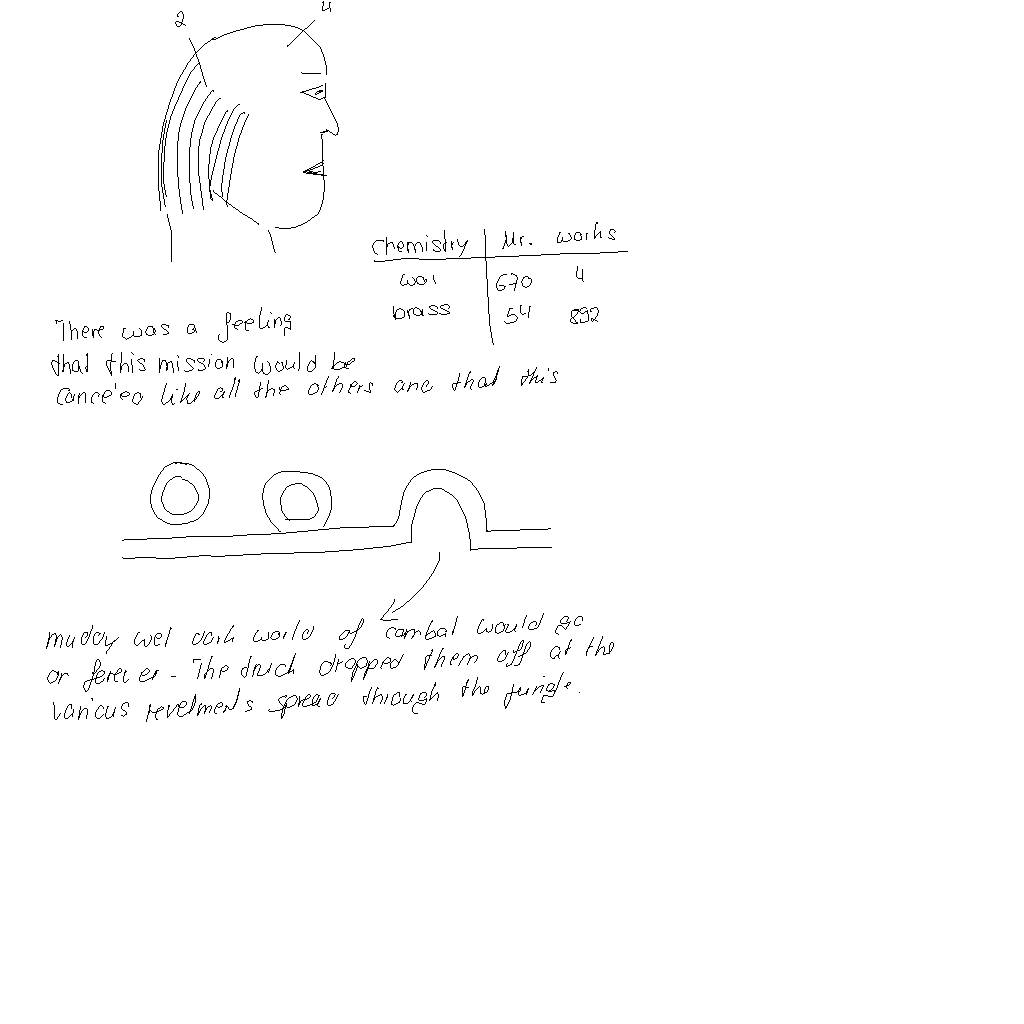 2 4
Chemistry Mr. works
war 670 4
brass 54 892
There was a feeling
that this mission would be
cance'ed like all the others and that this
muddy wet dark world of combat would go
or ferever. The truck dropped them off at the
various revetments spread through the jungle.